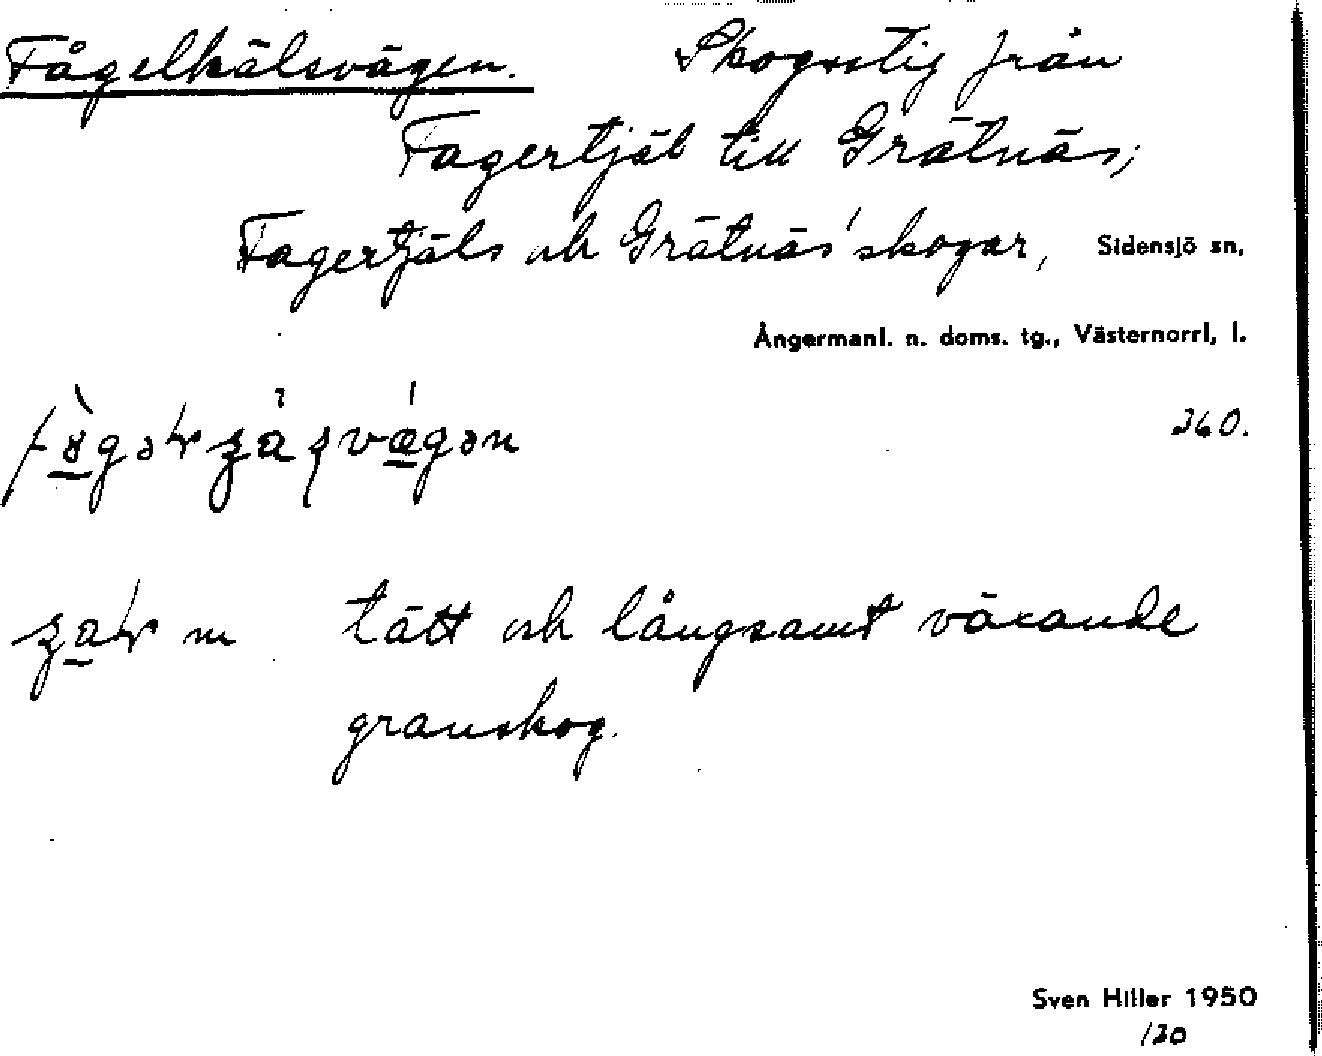 Fågelhälsvägen. Skogsstig från
Fagertjäl till Grätnäs;
Fagertjäls och Grätnäs' skogar, Sidensjö sn,
Ångermanl. n. doms. tg., Västernorrl, l.
360.
m tätt och långsamt växande
granskog.
Sven Hiller 1950
/30